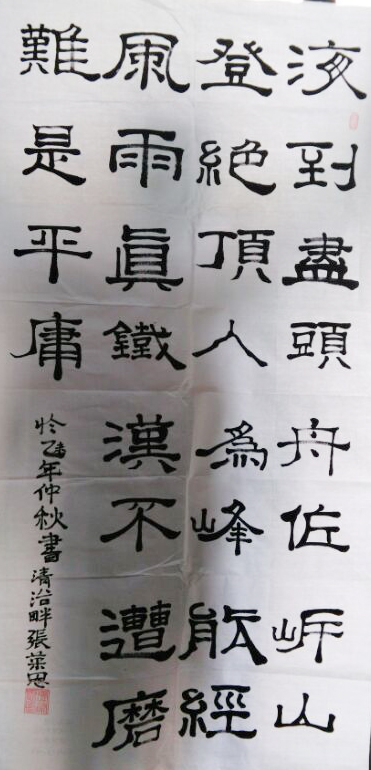 海到盡頭舟作岸山
登絕頂人為峰能經
風雨眞鐵漢不遭磨
難是平庸
於乙未年仲秋書
清沿畔張恩